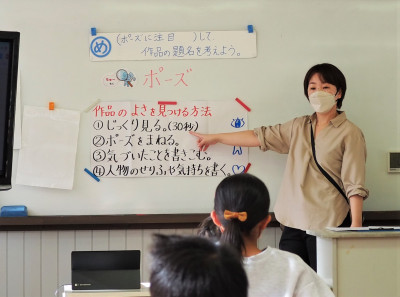 め (ポーズに注目)して、
作品の題名を考えよう。
ポーズ
作品のよさを見つける方法
①じっくり見る。(30秒)
②ポーズをまねる。
③気づいたことを書きこむ。
④人物のせりふや気持ちを書く。